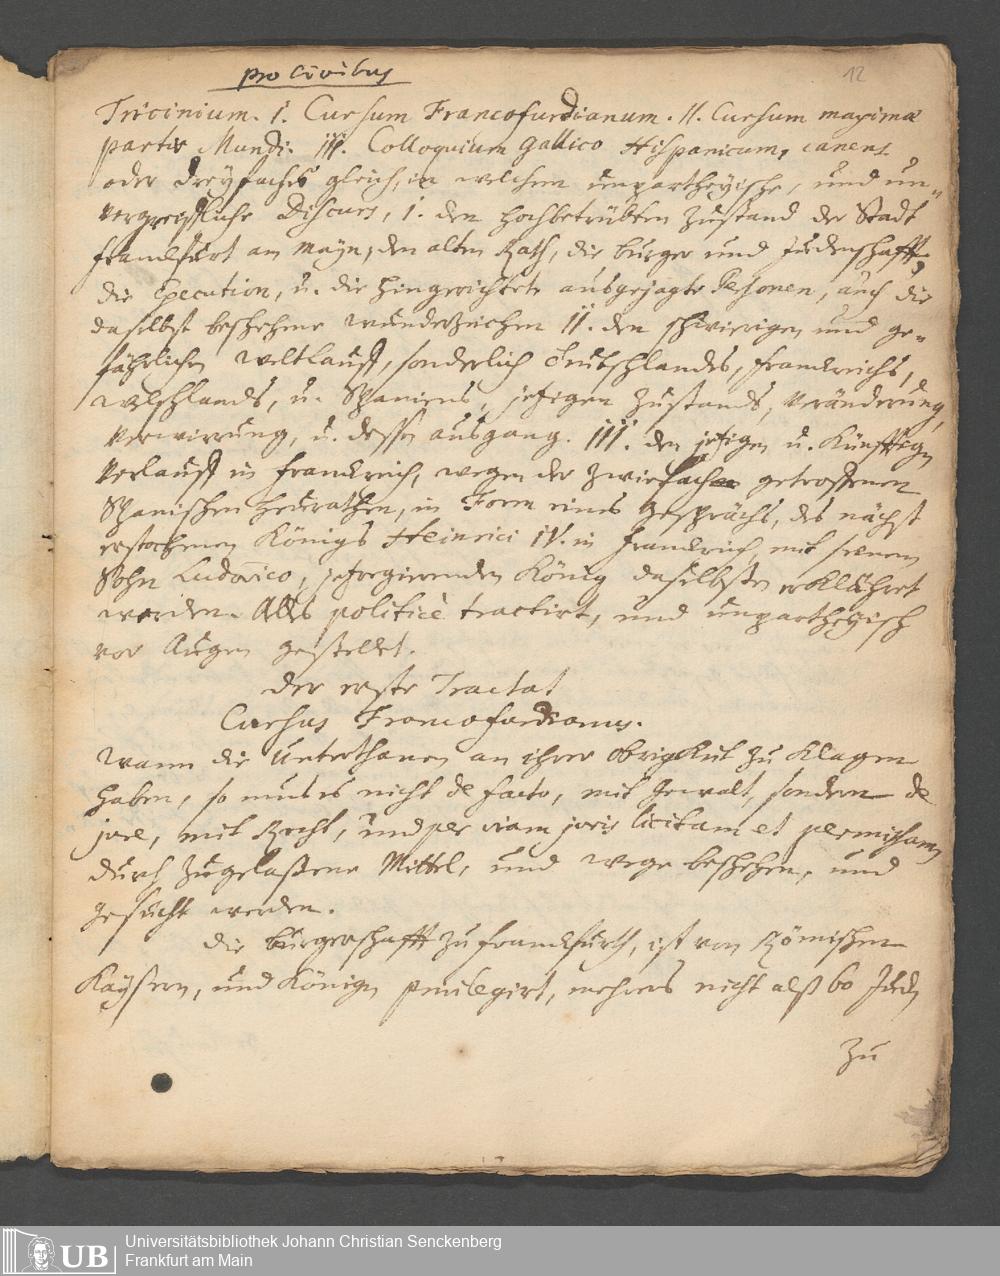 pro Civibus
12
Tricinium. I. Cursum Francofurdianum. II. Cursum maximae
partis Mundi. III. Colloquium Gallico Hispanicum, canens
oder dreyfachs gleich, in welchem unpartheyische, und un-
vergreiffliche Discurs, I. den hochbetrübten Zustand der Stadt
Franckfurt am Mayn, den alten Rath, die burger und Judenschafft,
die Execution, u. die hingerichtete ausgejagte Persohnen, auch die
daselbst beschehene wunderzeichen II. den schwierigen und ge-
fährlichen weltlauff, sonderlich Teutschlandes, Franckreichs,
welschlands, u. Spaniens, jetzigen Zustands, Veränderung,
Verwirrung, u. dessen ausgang. III. den jetzigen u. Künfftign
Verlauff in Franckreich, wegen der Zwiefachen getroffenen
Spanischen heurathen, in Form eines Gesprächs, des nächst
erstochenen Königs Heinrici IV. in Franckreich mit seinem
Sohn Ludovico, jetzregierenden König daselbsten erklähret
werden. Alles politicè tractirt, und unpartheyisch
vor Augen gestellet.
Der erste Tractat
Cursus Francofurdianus.
Wann die Unterthanen an ihrer obrigkeit zu klagen
haben, so mus es nicht de facto, mit Gewalt, sondern de
jure, mit Recht, und per viam juris licitam et permissam
durch zugelaßene Mittel, und wege beschehen, und
gesucht werden.
Die burgerschafft zu Franckfurth, ist von Römischen
Kaysern, und Königen privilegirt, mehrers nicht alß 60 Juden
zu
UB Universitätsbibliothek Johann Christian Senckenberg
Frankfurt am Main